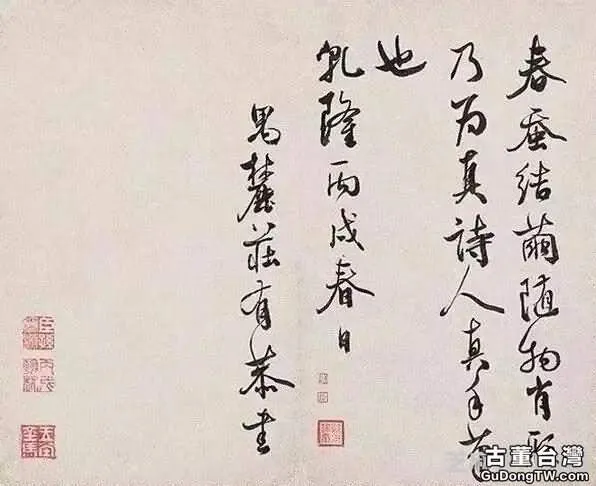 春蚕结茧随物肖形
乃为真詩人真手筆
也
乾隆丙戌春日
禺麓莊有恭書
古董台灣
GuDongTW.com